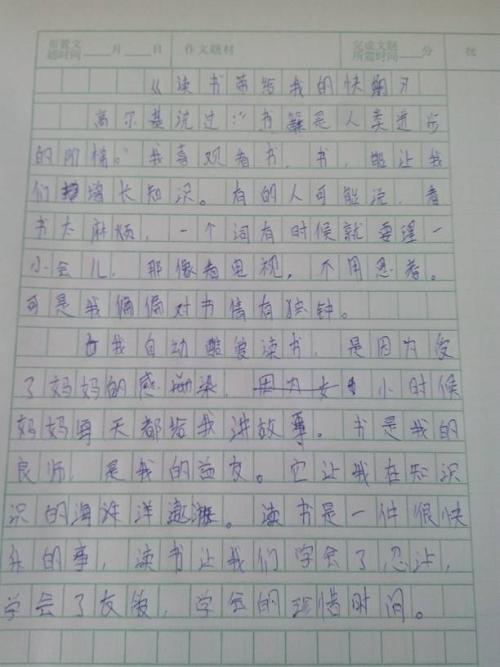 布置文题时间 月 日 作文题材 完成文题所需时间 分 批
《读书带给我的快乐》
高尔基说过：“书籍是人类进步
的阶梯。”我喜观看书，书，能让我
们增长知识。有的人可能说，看
书太麻烦，一个词有时候就要理一
小会儿，那像看电视，不用思考。
可是我偏偏对书情有独钟。
我自动酷爱读书，是因为受
了妈妈的感染，小时候
妈妈每天都给我讲故事。书是我的
良师，是我的益友。它让我在知识
识的海洋洋遨游。读书是一件很快
乐的事，读书让我们学会了忍让，
学会了友爱，学会的珍惜时间。